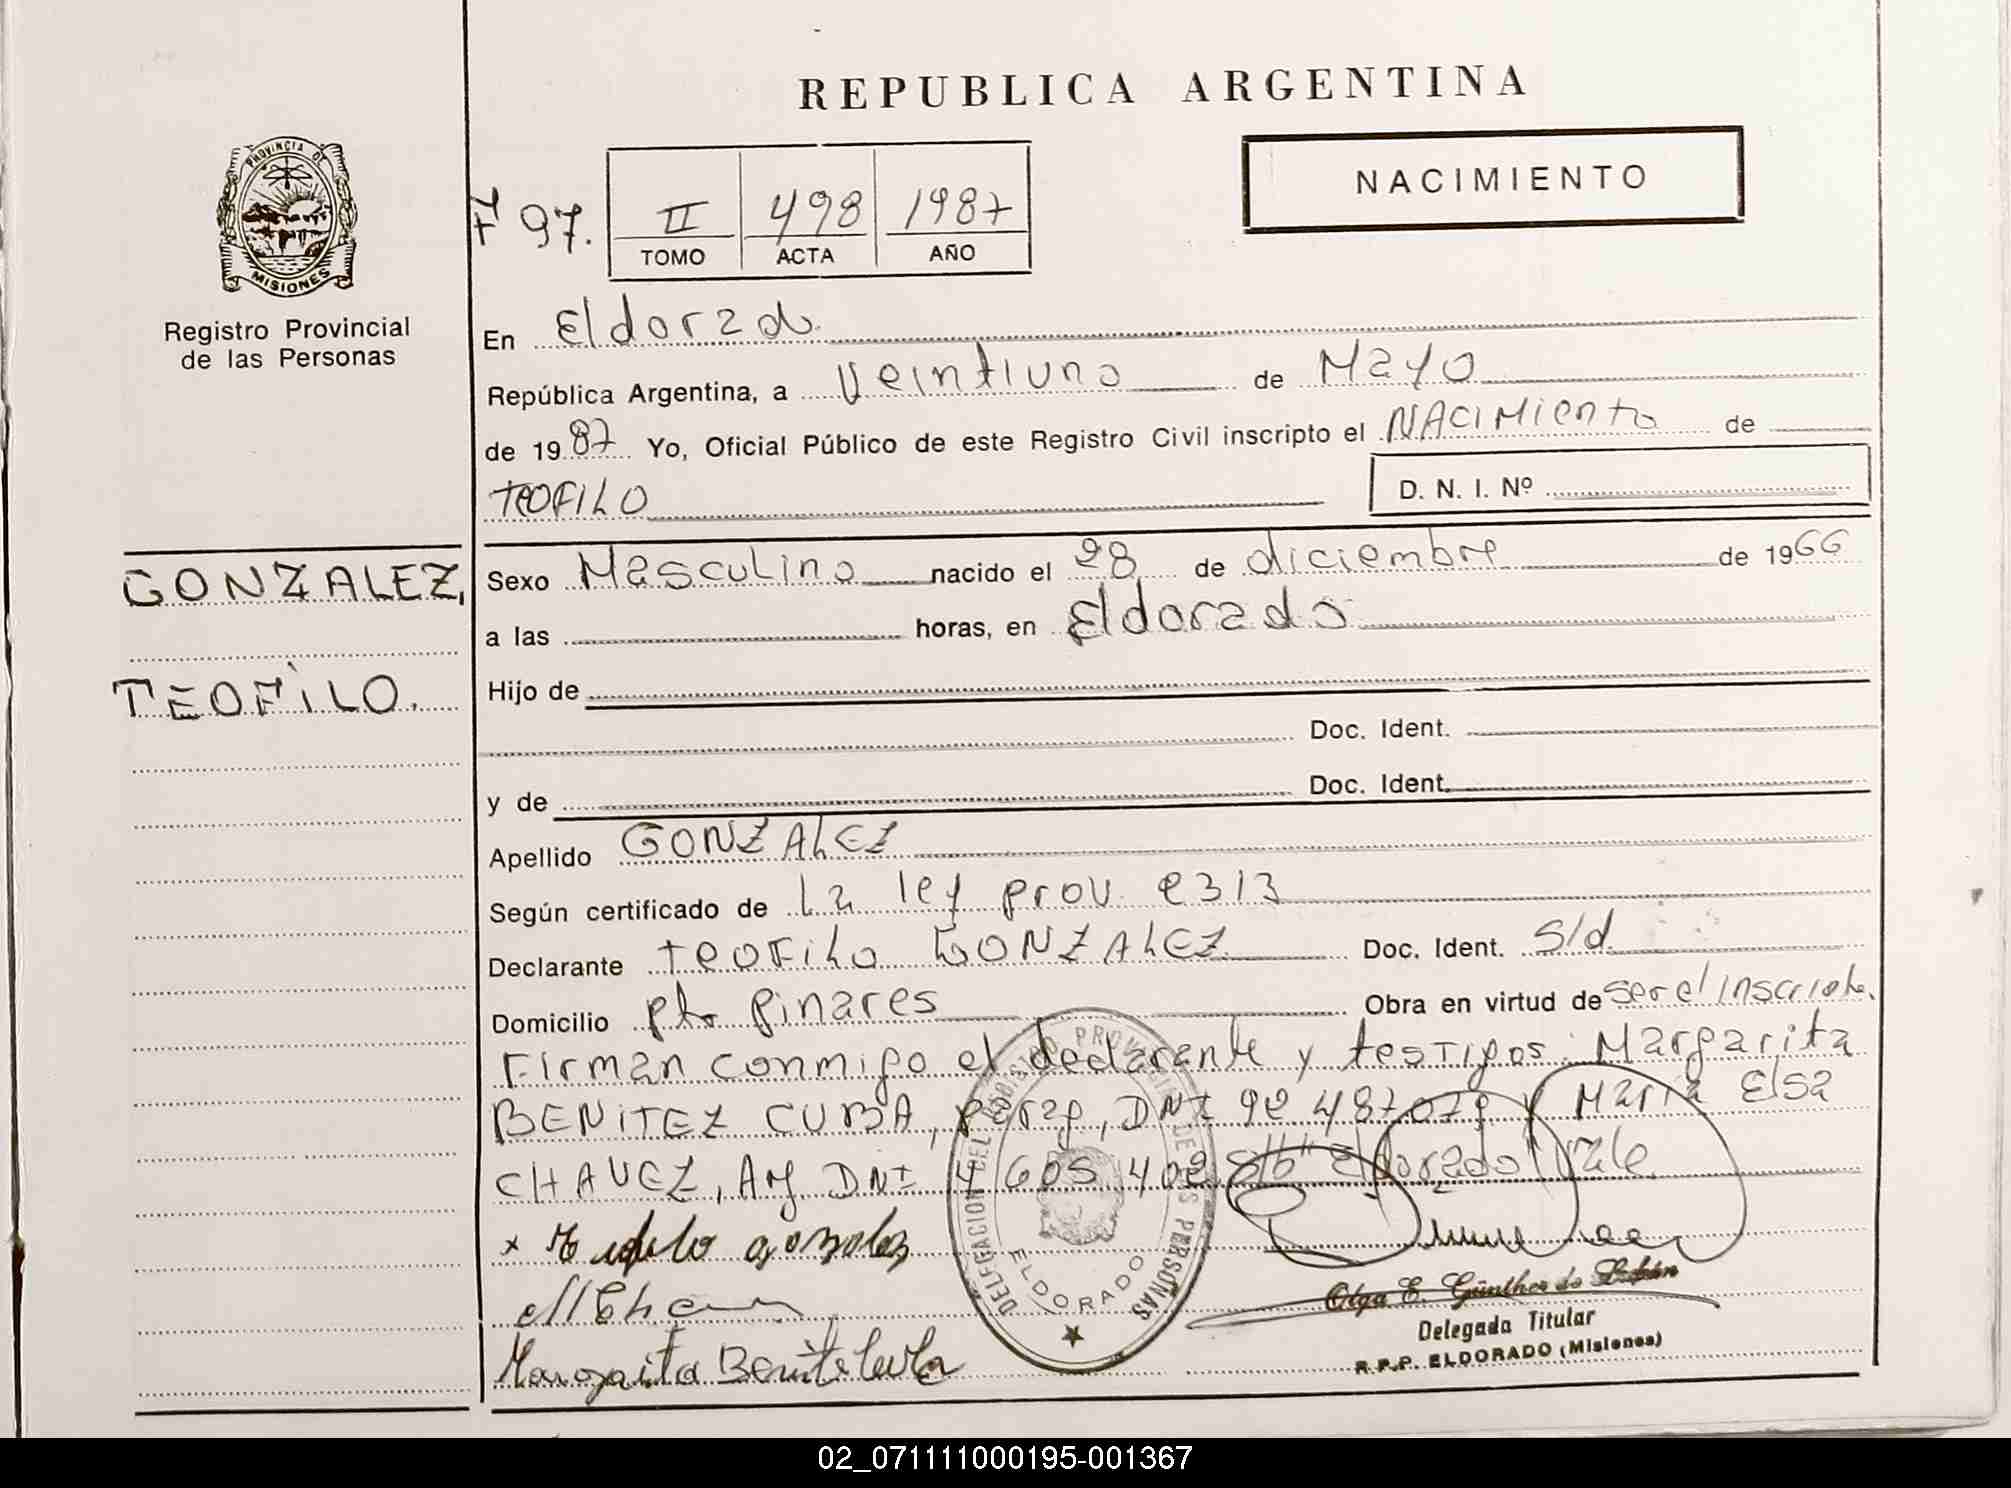 REPUBLICA ARGENTINA
PROVINCIA DE
MISIONES
Registro Provincial
de las Personas
F 97.
II 498 1987
TOMO ACTA AÑO
NACIMIENTO
En Eldorado
República Argentina, a Veintiuno de Mayo
de 1987 Yo, Oficial Público de este Registro Civil inscripto el NACIMIENTO de
TEOFILO
D. N. I. Nº
GONZALEZ,
TEOFILO.
Sexo Masculino nacido el 28 de diciembre de 1966
a las horas, en Eldorado
Hijo de
Doc. Ident.
y de Doc. Ident.
Apellido GONZALEZ
Según certificado de La ley prov. 2313
Declarante TEOFILO GONZALEZ Doc. Ident. S/d
Domicilio pto pinares Obra en virtud de ser el inscripto.
Firman conmigo el declarante y testigos: Margarita
BENITEZ CUBA, parag, DNI 92 487079 y María Elsa
CHAVEZ, Arg DNI 4 605 402 Eldorado Vale
x gonzalez
Margarita Benite Cuba
DELEGACION DEL REGISTRO PROVINCIAL DE LAS PERSONAS
ELDORADO
Olga E. Günther de
Delegada Titular
R.P.P. ELDORADO (Misiones)
02_071111000195-001367